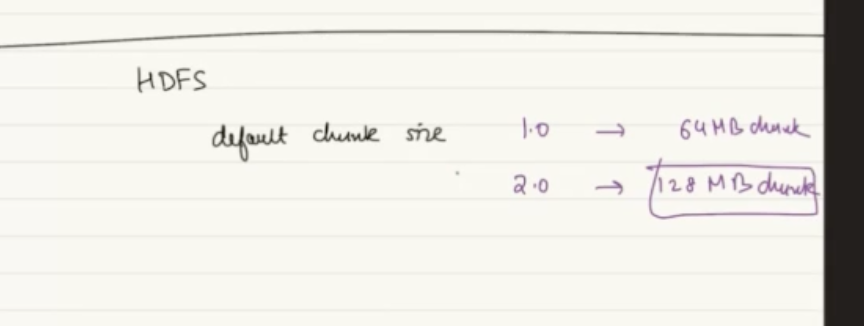 HDFS
default chunk size 1.0 → 64 MB chunk
2.0 → 128 MB chunk